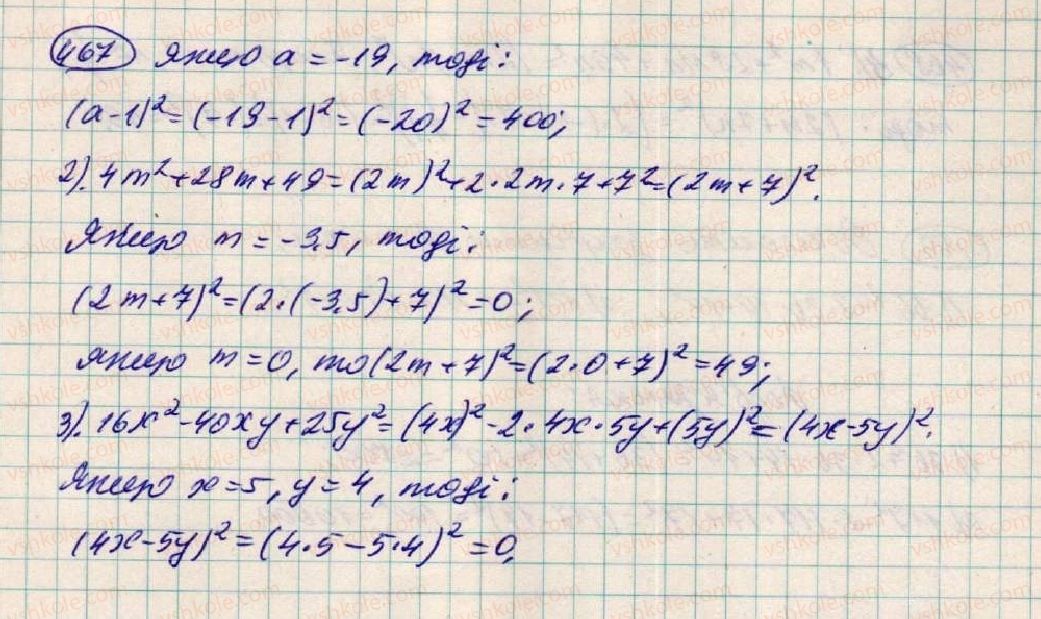 467 Якщо a = -19, тоді:
(a-1)² = (-19-1)² = (-20)² = 400;
2). 4m² + 28m + 49 = (2m)² + 2·2m·7 + 7² = (2m+7)².
Якщо m = -3,5, тоді:
(2m+7)² = (2·(-3,5)+7)² = 0;
якщо m = 0, то (2m+7)² = (2·0+7)² = 49;
3). 16x² - 40xy + 25y² = (4x)² - 2·4x·5y + (5y)² = (4x-5y)².
Якщо x = 5, y = 4, тоді:
(4x-5y)² = (4·5-5·4)² = 0.